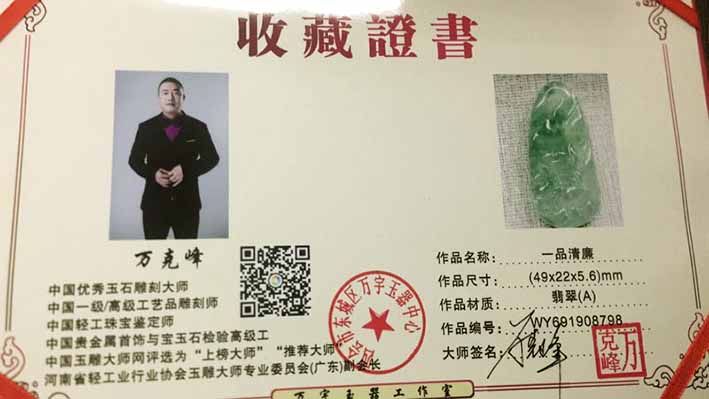 收藏證書
万克峰
中国优秀玉石雕刻大师
中国一级/高级工艺品雕刻师
中国轻工珠宝鉴定师
中国贵金属首饰与宝玉石检验高级工
中国玉雕大师网评选为“上榜大师”“推荐大师”
河南省轻工业行业协会玉雕大师专业委员会(广东)副会长
市东城区万字玉器中心
作品名称: 一品清廉
作品尺寸: (49x22x5.6)mm
作品材质: 翡翠(A)
作品编号: WY691908798
大师签名:
万克峰
万字玉器工作室